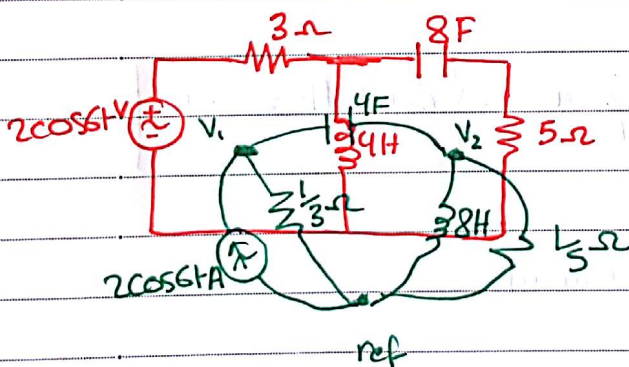 3Ω 8F
2cos6tV + V₁ 4F 4H V₂ 5Ω
1/3Ω 8H 1/5Ω
2cos6tA
ref